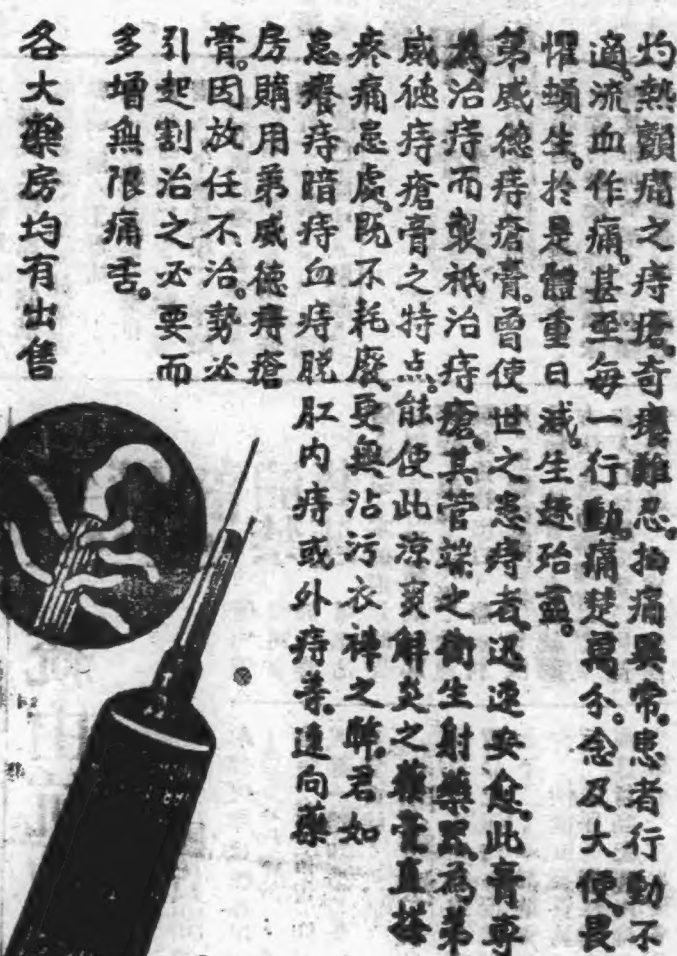 灼熱顫痛之痔瘡。奇癢難忍。抽痛異常。患者行動不
適。流血作痛。甚至每一行動。痛楚萬分。念及大便。畏
懼蝟生。於是體重日减。生趣殆盡。
第威德痔瘡膏。曾使世之患痔者。迅速安愈。此膏專
為治痔而製。祇治痔瘡。其管端之衛生射藥器。為弟
威德痔瘡膏之特点。能使此涼爽解炎之藥膏直搽
疼痛患處。既不耗廢。更無沾污衣褲之弊。君如
患癢痔暗痔血痔脱肛内痔或外痔等。速向藥
房購用弟威德痔瘡
膏。因放任不治。勢必
引起割治之必要而
多增無限痛苦。
各大藥房均有出售